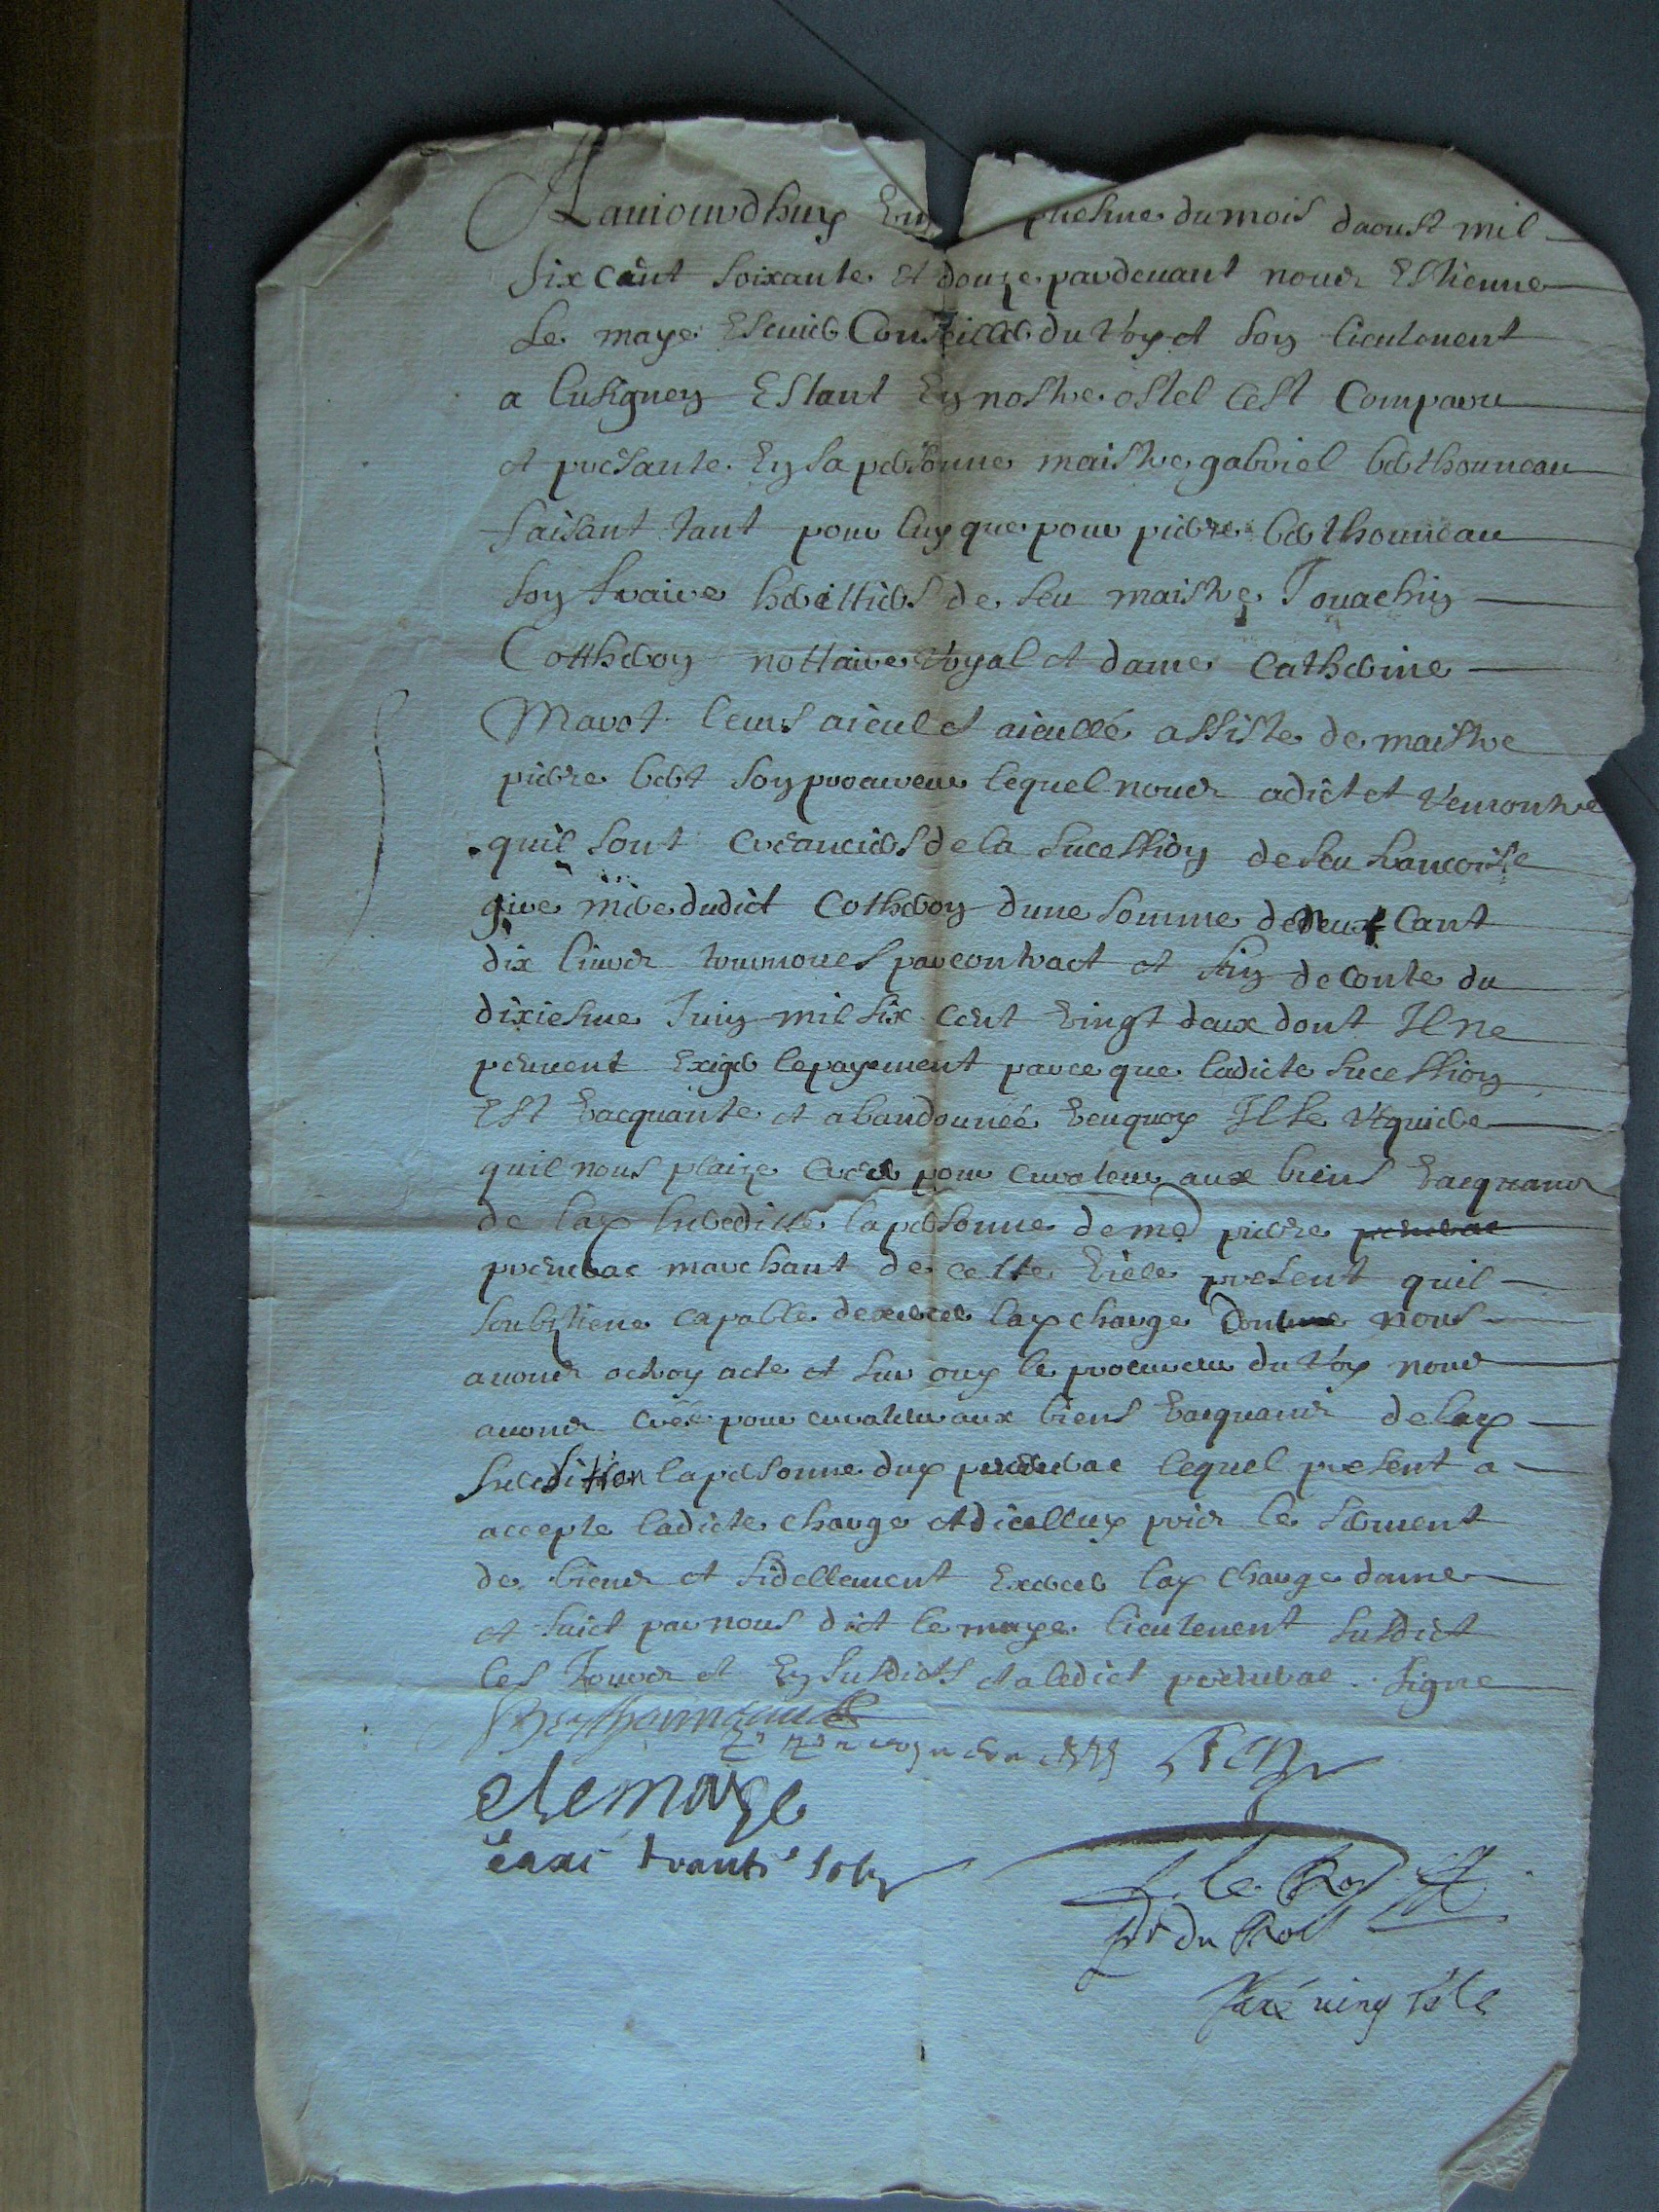 Auiourdhuy du mois daoust mil
six cent soixante et douze pardeuant nous Estienne
Le maye Escuier Conseiller du Roy et son lieutenent
a lusignen Estant En nostre ostel cest Comparu
et presante En sa personne maistre gabriel berthonneau
faisant tant pour luy que pour pierre berthonneau
son fraire herittiers de feu maistre Jouachin
Cottheron nottaire Royal et dame Catherine
Marot leurs aieul et aieullé assiste de maistre
pierre bert son procureur lequel nous a dict et remontre
quil sont creanciers de la sucession de feu francoise
mere dudict Cotheron dune somme de cent
dix liures tournoues par contract et fin de conte du
dixiesme Juin mil six cent vingt deux dont Il ne
peuuent Exiger le payement parce que ladicte sucession
Est vacquante et abandonnéé Il se requiere
quil nous plaize creer pour curateur aux biens vacquans
de la personne de me pierre
preuerac marchant de cette ville present quil
soubztiene capable dexercer charge nous
auons octroy acte et sur ouy le procureur du Roy nous
auons créé pour curateur aux biens vacquans de
la personne lequel present a
accepte ladicte charge et dicelluy pris le serment
de biens et fidellement Exercer charge donne
et faict par nous dict le maye lieutenent susdict
les Jours et En susdicts et a ledict preuerac signe
Berthonneau
elemaye
trante sols
le Roy
pr du Roi
vingt sols